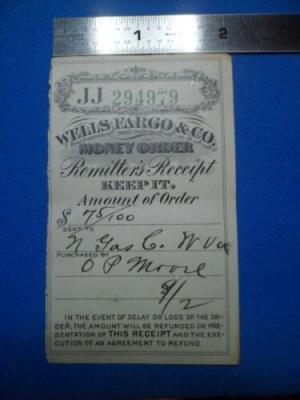 1 2
JJ 294979
WELLS FARGO & CO.
MONEY ORDER
Remitter's Receipt
KEEP IT.
Amount of Order
$ 75/100
SENT TO
N Gas C. W Va
PURCHASED BY
O P Moore
9/2
IN THE EVENT OF DELAY OR LOSS OF THE OR-
DER, THE AMOUNT WILL BE REFUNDED ON PRE-
SENTATION OF THIS RECEIPT AND THE EXE-
CUTION OF AN AGREEMENT TO REFUND.